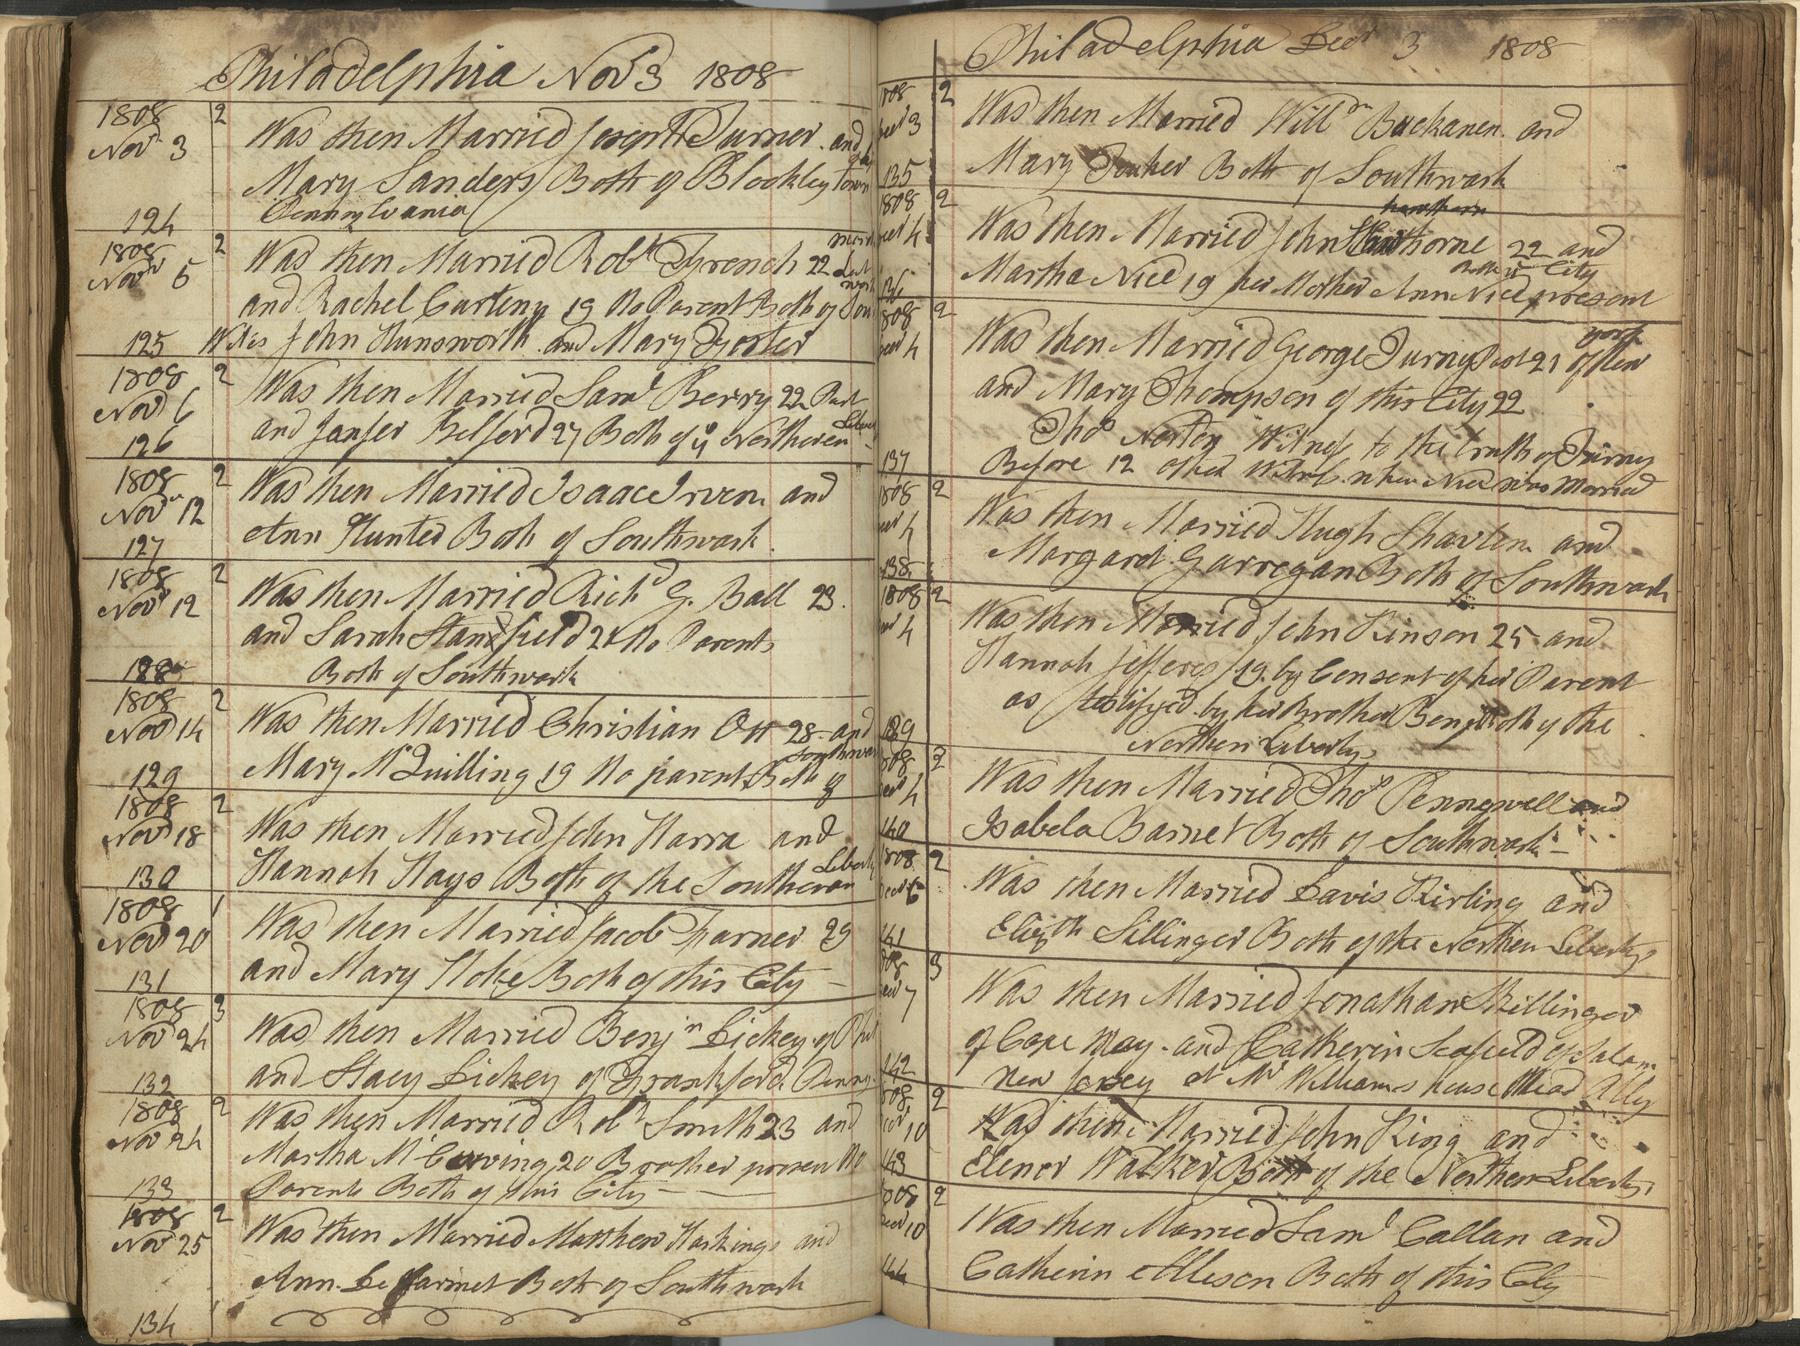 Philadelphia Novr 3 1808
1808 2
Novr 3
Was then Married Joseph Turner and
Mary Sanders Both of Blockley town
Pennsylvania
124
1808 2
Novr 5
Was then Married Robt French 22
and Rachel Carteny 19 No Parent Both of Sou
125 Witns John Hunsworth and Mary Foster
1808 2
Novr 6
Was then Married Saml Berry 22 Past
and Janfer Belford 27 Both of ye Northeren
126
1808 2
Novr 12
Was then Married Isaac Irven and
Ann Hunted Both of Southwark
127
1808 2
Novr 12
Was then Married Richd G. Ball 23
and Sarah Standfield 24 No Parents
Both of Southwark
128
1808 2
Novr 14
Was then Married Christian Ott 28 and
Mary McQuilling 19 No parents Both of
Southwark
129
1808 2
Novr 18
Was then Married John Harra and
Hannah Hays Both of the Southeron Liberty
130
1808 1
Novr 20
Was then Married Jacob Farner 29
and Mary Hoke Both of this City
131
1808 3
Novr 24
Was then Married Benjn Dickey of Phil
and Stacy Dickey of Frankford Penny
132
1808 2
Novr 24
Was then Married Robt Smith 23 and
Martha Mc 20 Brother presen No
Parents Both of this City
133
1808 2
Novr 25
Was then Married Matthew Haskings and
Ann Both of Southwark
134 1
Philadelphia Decr 3 1808
1808 2
Decr 3
Was then Married Willm Buckanen and
Mary Both of Southwark
135
1808 2
Decr 4
Was then Married John Hawthorne 22 and
Both ye City
Martha Nice 19 her Mother Ann Nice present
136
1808 2
Decr 4
york
Was then Married George Past 21 of New
and Mary Thompson of this City 22
Thos Norton Witness to the truth of
Before 12 other Witns when Nice was Married
137
1808 2
Decr 4
Was then Married Hugh and
Margaret Garregan Both of Southwark
138
1808 2
Decr 4
Was then Married John Kinson 25 and
Hannah Jefferes 19 by Consent of her Parent
as testifyed by her Brother Benj Both of the
Northern Libertys
139
1808 2
Decr 4
Was then Married Thos Pennewell and
Isabela Barnet Both of Southwark
140
1808 2
Decr 6
Was then Married Davis Kirling and
Elizth Sillinger Both of the Northen Libertys
141
1808 3
Decr 7
Was then Married Jonathan Hillinger
of Cape May and Catherin Scofield of Salam
New Jersey at Mr Williams house Mead Ally
142
1808 2
Decr 10
Was then Married John King and
Elenor Walker Both of the Northen Libertys
143
1808 2
Decr 10
Was then Married Saml Callan and
Catherin Alleson Both of this City
144